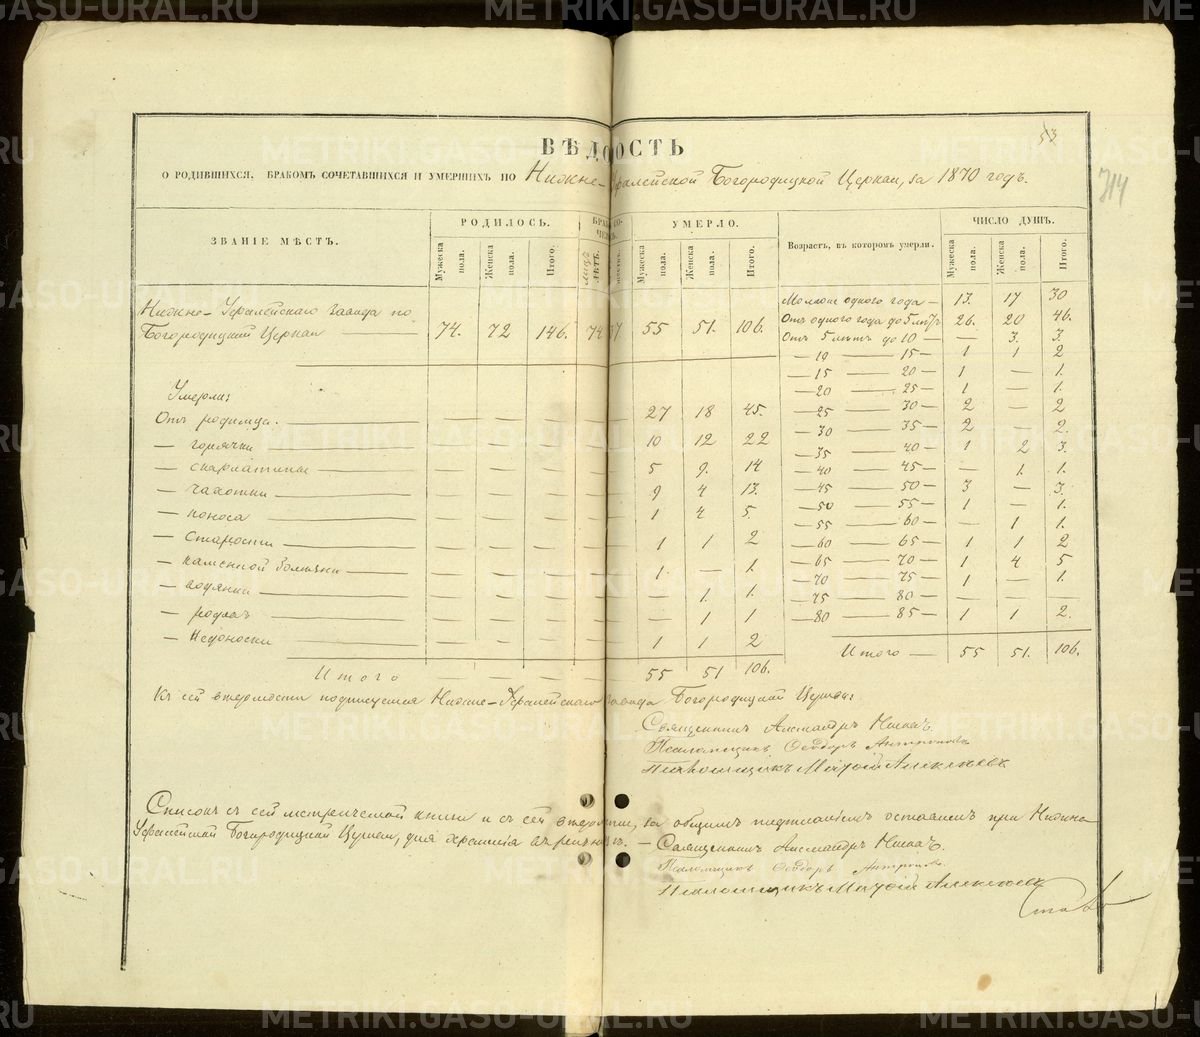 53
ВѢДОМОСТЬ
О РОДИВШИХСЯ, БРАКОМЪ СОЧЕТАВШИХСЯ И УМЕРШИХЪ ПО Нижне-Уфалейской Богородицкой Церкви, за 1870 годъ.
714
ЗВАНІЕ МѢСТЪ. РОДИЛОСЬ. УМЕРЛО. Возрастъ, въ которомъ умерли. ЧИСЛО ДУШЪ.
Мужеска пола. Женска пола. Итого. Мужеска пола. Женска пола. Итого. Мужеска пола. Женска пола. Итого.
Нижне-Уфалейскаго Завода по
Богородицкой Церкви 74. 72 146. 74 37 55 51. 106.
Умерли:
Отъ родимца. — — — — — 27 18 45.
— горячки — — — — — 10 12 22
— скарлатины — — — — — 5 9. 14
— чахотки — — — — — 9 4 13.
— поноса — — — — — 1 4 5.
— старости — — — — — 1 1 2
— каменной болѣзни — — — — — 1. — 1.
— водянки — — — — — — 1. 1.
— родахъ — — — — — — 1 1
— Недоноски — — — — — 1 1 2
Итого — — — — — 55 51 106.
Моложе одного года — 13. 17 30
Отъ одного года до 5 лѣтъ 26. 20 46.
Отъ 5 лѣтъ до 10 — — 3. 3.
— 10 — 15 — 1 1 2
— 15 — 20 — 1 — 1.
— 20 — 25 — 1 — 1.
— 25 — 30 — 2 — 2
— 30 — 35 — 2 — 2.
— 35 — 40 — 1 2 3.
— 40 — 45 — — 1. 1.
— 45 — 50 — 3 — 3.
— 50 — 55 — 1 — 1.
— 55 — 60 — — 1 1.
— 60 — 65 — 1 1 2
— 65 — 70 — 1 4 5
— 70 — 75 — 1 — 1.
— 75 — 80 — — — —
— 80 — 85 — 1 1 2.
Итого — 55 51. 106.
Къ сей вѣдомости подписуемся Нижне-Уфалейскаго завода Богородицкой Церкви:
Священникъ Александръ
Псаломщикъ Ѳеодоръ Антроповъ
Псаломщикъ Матѳій Алексѣевъ
Списокъ съ сей метрической книги и съ сей вѣдомости, за общимъ подписаніемъ оставленъ при Нижне
Уфалейской Богородицкой Церкви, для храненія въ ризницѣ. — Священникъ Александръ
Псаломщикъ Ѳеодоръ Антроповъ.
Псаломщикъ Матѳій Алексѣевъ
METRIKI.GASO-URAL.RU